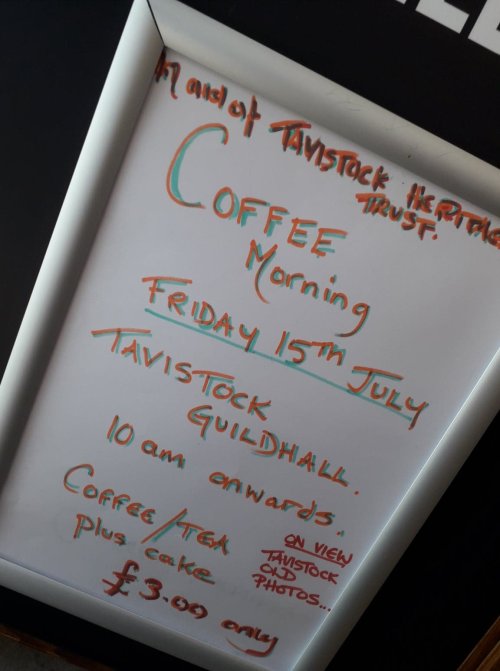 In aid of TAVISTOCK HERITAGE
TRUST.
COFFEE
Morning
FRIDAY 15TH JULY
TAVISTOCK
GUILDHALL.
10 am onwards.
COFFEE/TEA
plus cake
£3.00 only
ON VIEW
TAVISTOCK
OLD
PHOTOS...